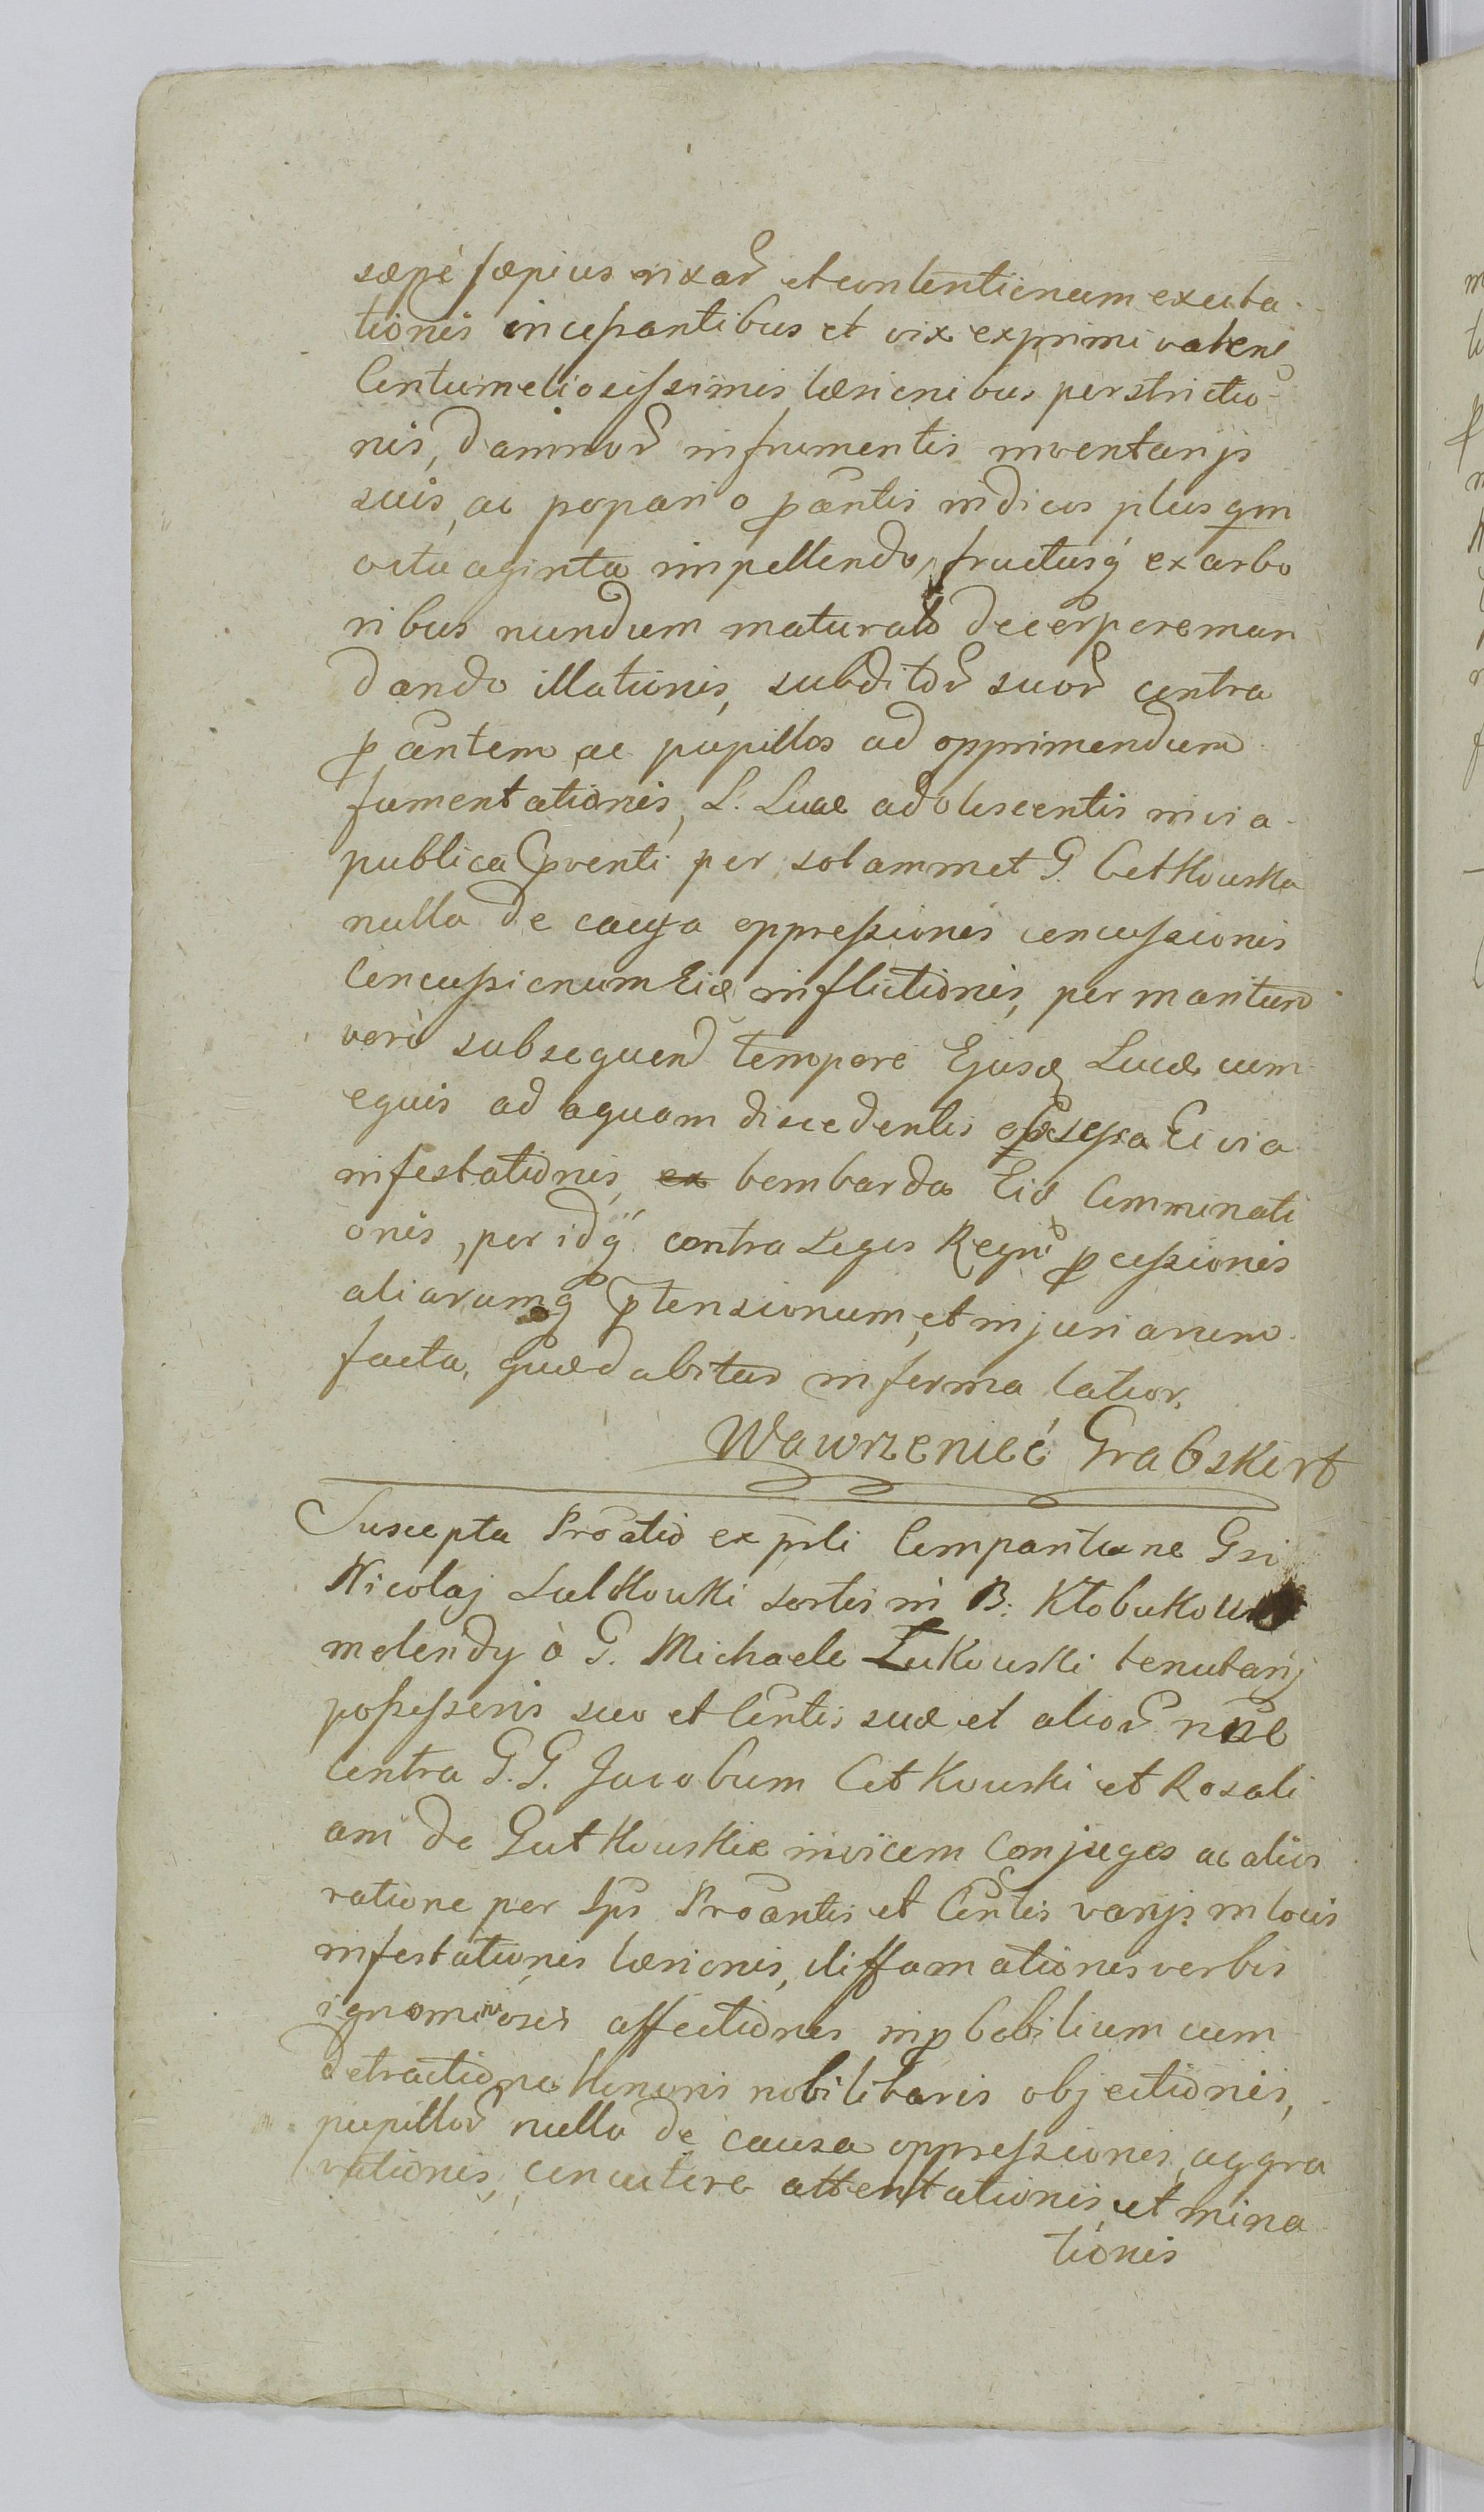 sæpè sæpius rixar et contentionum excita
tionis incessantibus et vix exprimi valen
Contumeliosissimis læsionibus perstrictio
nis, damnor in frumentis inventarijs
suis, ac propario pantis indicos plus qm
octuaginta impellendo, fructusq ex arbo
ribus nundum maturat decerpere man
dando illationis, subditor suor contra
pantem ac pupillos ad opprimendum
fumentationis, L. Lucæ adolescentis in via
publica pventi per solammet G. Cetkowska
nulla de causa oppressionis concussionis
Concussionumq Eid inflictionis, per maritum
verò subsequen tempore Ejusd Lucæ cum
equis ad aquam discedentis obsessa Ei via
infestationis, bombarda Eid Comminati
onis, per idq contra Leges Regni pcessionis
aliarumq ptensionum, et injuriarum
facta, quæ dabitur in forma latior.
Wawrzeniec Grabski
Suscepta Proatio ex prli Comparitione Gsi
Nicolaj Sulkowski sortis in B. Kłobukow
molendy à G. Michaele Łukowski tenutarij
possessoris suo et Contis suæ et alior nne
contra G. G. Jacobum Cetkowski et Rosali
am de Gutkowskie invicem Conjuges ac alios
ratione per Ips Proantis et Contis varijs in locis
infestationis læsionis, diffamationis verbis
ignominiosis affectionis inpbabilium cum
detractione Honoris nobilitaris objectionis,
pupillor nulla de causa oppressionis, aggra
vationis, concutere attentationis, et mina
tionis